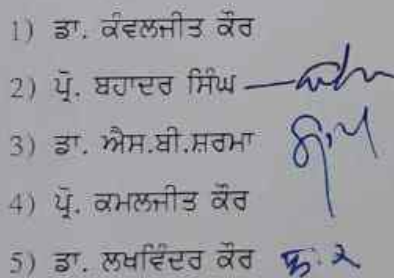 1) ਡਾ. ਕੰਵਲਜੀਤ ਕੌਰ
2) ਪ੍ਰੋ. ਬਹਾਦਰ ਸਿੰਘ
3) ਡਾ. ਐਸ.ਬੀ.ਸ਼ਰਮਾ
4) ਪ੍ਰੋ. ਕਮਲਜੀਤ ਕੌਰ
5) ਡਾ. ਲਖਵਿੰਦਰ ਕੌਰ